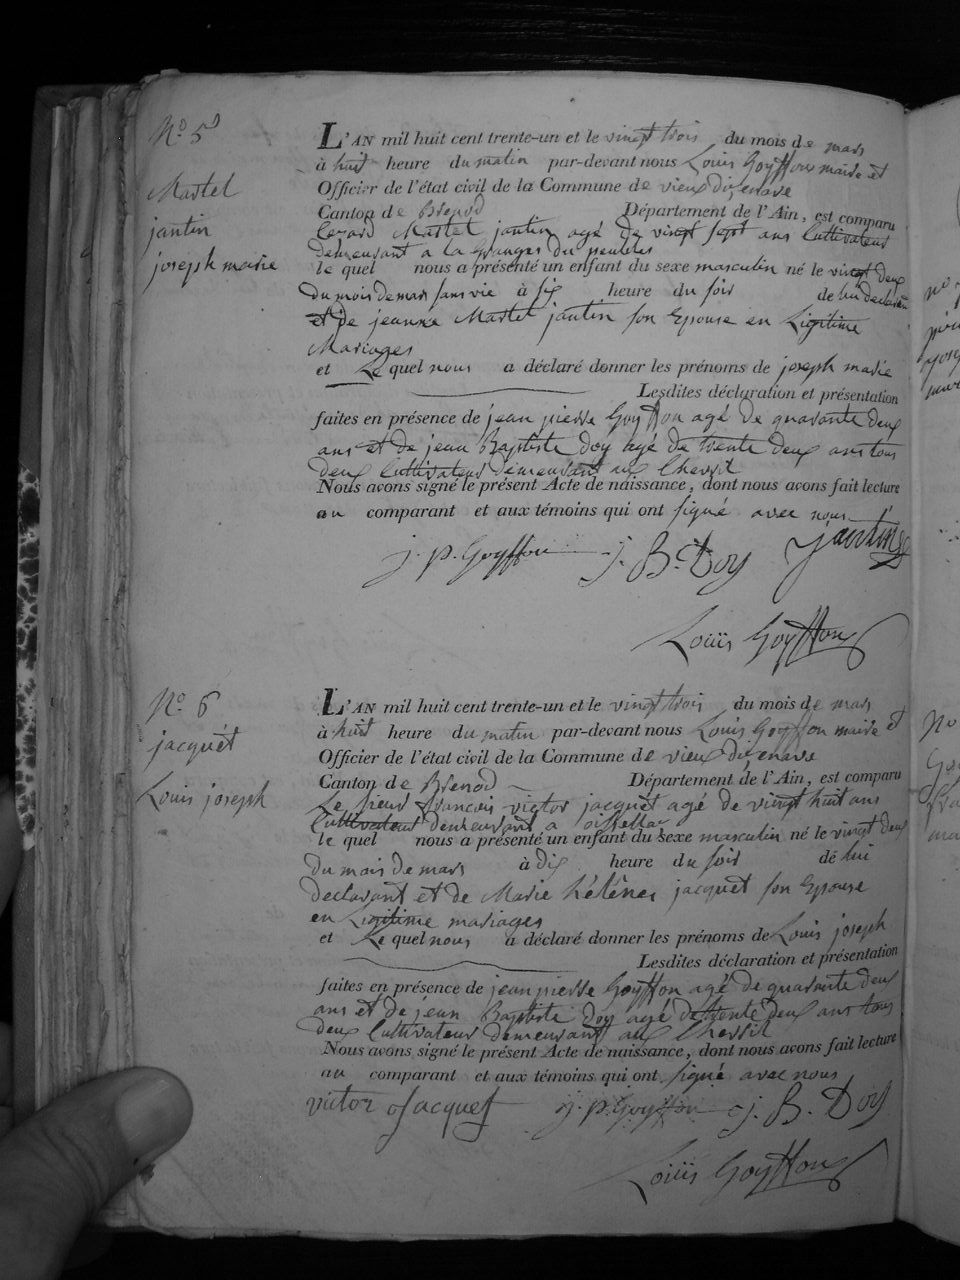 N.o 5
Martel
jantin
joseph marie
L'AN mil huit cent trente-un et le vingt trois du mois de mars
à huit heure du matin par-devant nous Louis Goyffon maire et
Officier de l'état civil de la Commune de vieux dizenave
Canton de Brenod Département de l'Ain, est comparu
Martel jantin agé de vingt sept ans Cultivateur
demeurant a la Granges du
le quel nous a présenté un enfant du sexe masculin né le vingt deux
du mois de mars sans vie à six heure du soir de lui declarant
et de jeanne Martel jantin son Epouse en Ligitime
Mariages
et Le quel nous a déclaré donner les prénoms de joseph marie
Lesdites déclaration et présentation
faites en présence de jean pierre Goyffon agé de quarante deux
ans et de jean Baptiste Doy agé de trente deux ans tous
deux Cultivateur demeurant au Chevril
Nous avons signé le présent Acte de naissance, dont nous avons fait lecture
au comparant et aux témoins qui ont signé avec nous
j. p. Goyffon j. B.te Doy Jantin
Louis Goyffon
N.o 6
jacquet
Louis joseph
L'AN mil huit cent trente-un et le vingt trois du mois de mars
à huit heure du matin par-devant nous Louis Goyffon maire et
Officier de l'état civil de la Commune de vieux dizenave
Canton de Brenod Département de l'Ain, est comparu
Le sieur francois victor jacquet agé de vingt huit ans
Cultivateur demeurant a oissellaz
le quel nous a présenté un enfant du sexe masculin né le vingt deux
du mois de mars à dix heure du soir dé lui
declarant et de Marie hélènes jacquet son Epouse
en Ligitime mariages
et Le quel nous a déclaré donner les prénoms de Louis joseph
Lesdites déclaration et présentation
faites en présence de jean pierre Goyffon agé de quarante deux
ans et de jean Baptiste Doy agé de trente deux ans tous
deux Cultivateur demeurant au Chevril
Nous avons signé le présent Acte de naissance, dont nous avons fait lecture
au comparant et aux témoins qui ont signé avec nous
victor Jacquet j. p. Goyffon j. B. Doy
Louis Goyffon